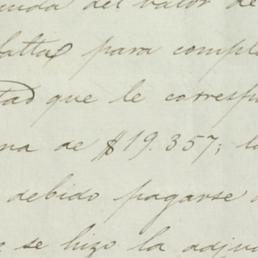 del valor de
falta para comple
tad que le corresp
na de $19.357; l
debido pagarse
se hizo la adju